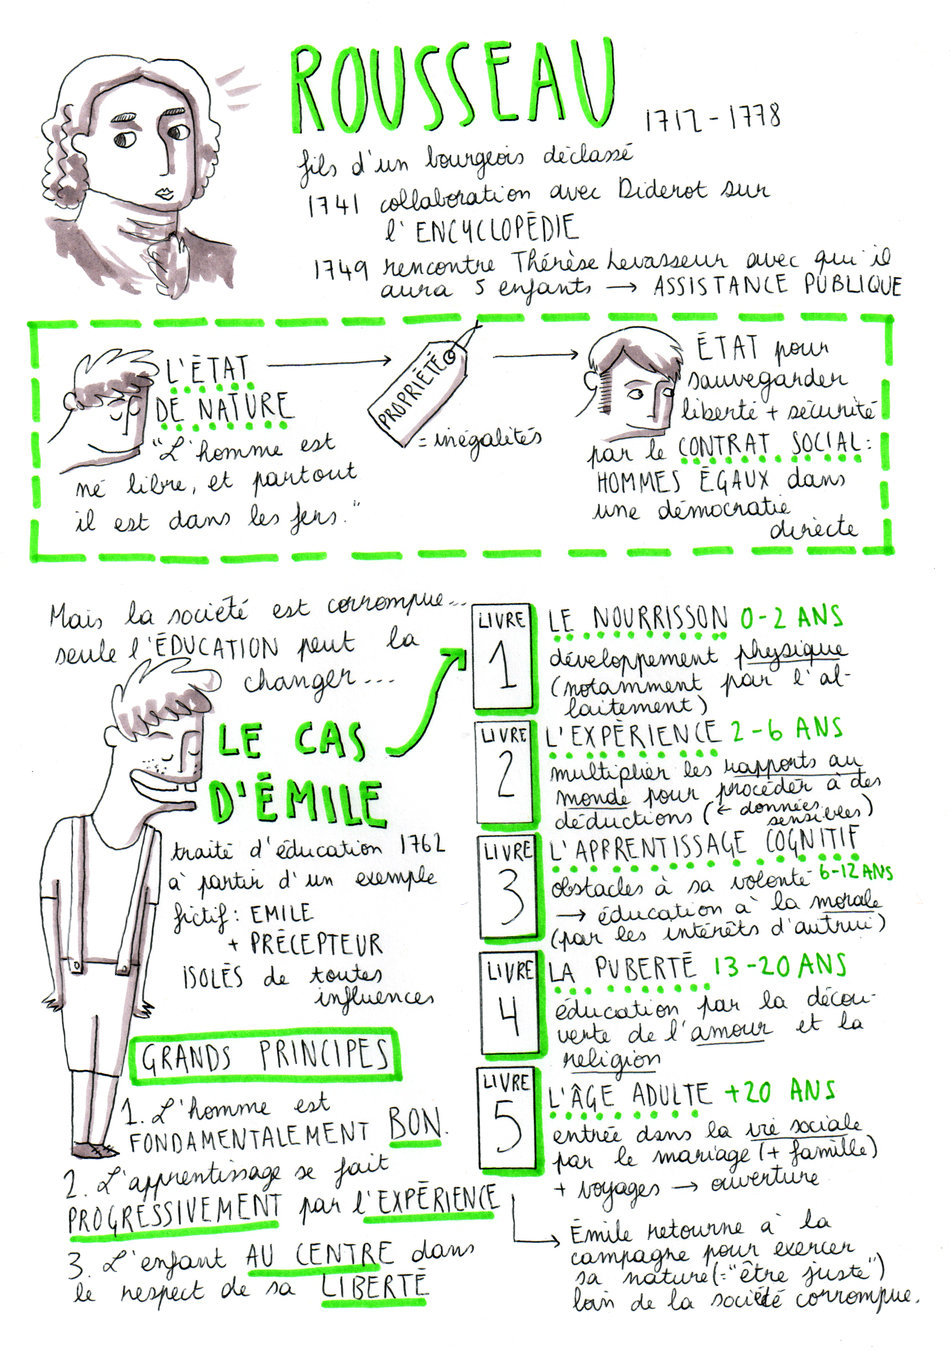 ROUSSEAU
1712-1778
fils d'un bourgeois déclassé
1741 collaboration avec Diderot sur
l'ENCYCLOPÉDIE
1749 rencontre Thérèse Levasseur avec qui il
aura 5 enfants → ASSISTANCE PUBLIQUE
L'ÉTAT
DE NATURE
"L'homme est
né libre, et partout
il est dans les fers."
PROPRIÉTÉ
= inégalités
ÉTAT pour
sauvegarder
liberté + sécurité
par le CONTRAT SOCIAL:
HOMMES ÉGAUX dans
une démocratie
directe
Mais la société est corrompue...
seule l'ÉDUCATION peut la
changer...
LE CAS
D'ÉMILE
traité d'éducation 1762
à partir d'un exemple
fictif: EMILE
+ PRÉCEPTEUR
ISOLÉS de toutes
influences
GRANDS PRINCIPES
1. L'homme est
FONDAMENTALEMENT BON.
2. L'apprentissage se fait
PROGRESSIVEMENT par l'EXPÉRIENCE
3. L'enfant AU CENTRE dans
le respect de sa LIBERTÉ
LIVRE
1
LE NOURRISSON 0-2 ANS
développement physique
(notamment par l'al-
laitement)
LIVRE
2
L'EXPÉRIENCE 2-6 ANS
multiplier les rapports au
monde pour procéder à des
déductions (← données
sensibles)
LIVRE
3
L'APPRENTISSAGE COGNITIF
6-12 ANS
obstacles à sa volonté
→ éducation à la morale
(par les intérêts d'autrui)
LIVRE
4
LA PUBERTÉ 13-20 ANS
éducation par la décou-
verte de l'amour et la
religion
LIVRE
5
L'ÂGE ADULTE +20 ANS
entrée dans la vie sociale
par le mariage (+ famille)
+ voyages → ouverture
Émile retourne à la
campagne pour exercer
sa nature (="être juste")
loin de la société corrompue.